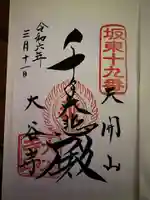 坂東十九番
天開山
千手大悲殿
大谷寺
令和六年
三月十一日